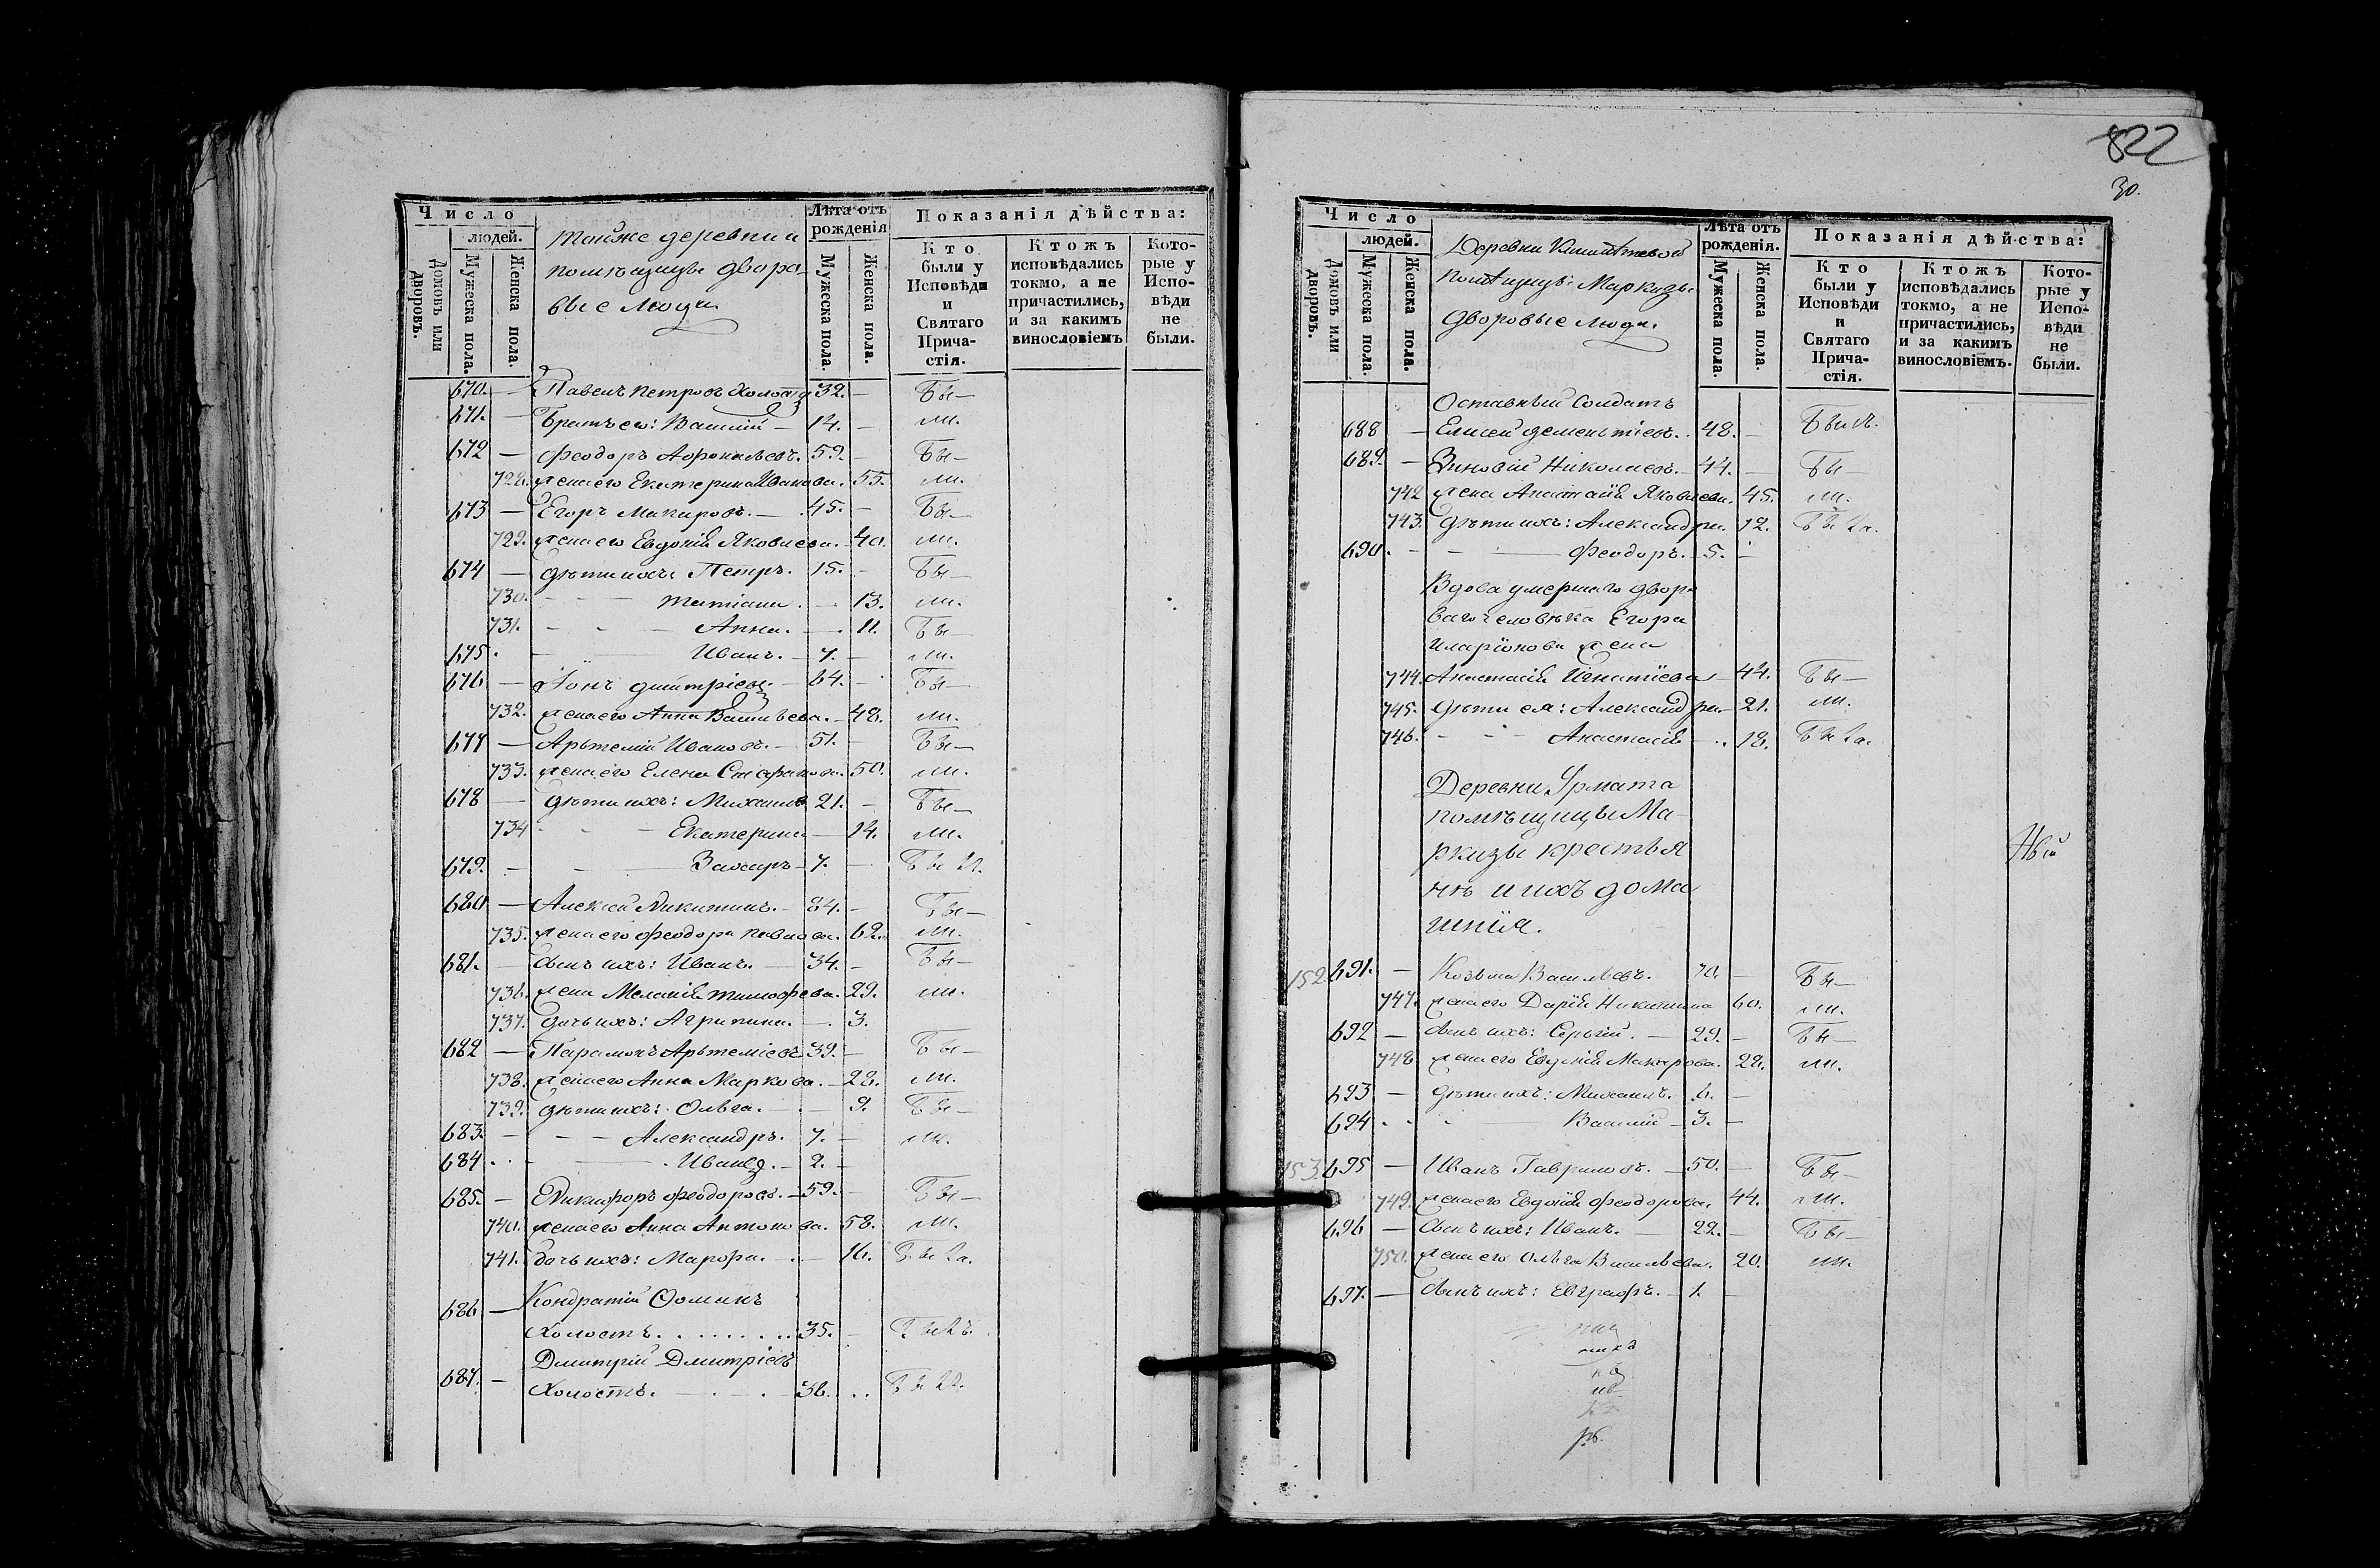 Число
людей.
Домовъ или дворовъ.
Мужеска пола.
Женска пола.
Тойже деревни и
помѣщицы двора-
выe люди
Лѣта отъ рожденія
Мужеска пола.
Женска пола.
Показанія дѣйства:
Кто были у Исповѣди и Святаго Прича-стія.
Ктожъ исповѣдались токмо, а не причастились, и за какимъ винословіемъ
Кото-рые у Испо-вѣди не были.
670. — Павелъ Петровъ холостъ 32. — Бы—
671. — Братъ ево: Василій — 14. — ли.
672 — Феодоръ Афонасьевъ. 59. — Бы—
728. жена его Екатерина Иванова. 55. ли.
673 — Егоръ Макаровъ. — 45. — Бы—
729. жена его Евдокія Яковлева. — 40. ли.
674 — дѣти ихъ: Петръ. 15. — Бы—
730. — Татіана. — 13. ли.
731. — Анна. — 11. Бы—
675. — Иванъ. — 7. — ли.
676 — Іонъ Дмитріевъ. — 64. — Бы—
732. жена его Анна Васильева. — 48. ли.
677 — Арьтемій Ивановъ. — 51. — Бы—
733. жена его Елена 50. ли.
678 — дѣти ихъ: Михаилъ 21. — Бы—
734 — Екатерина — 14. ли.
679. — Захаръ — 7. — Были.
680 — Алексей Никитинъ. — 84. — Бы—
735. жена его Феодора Павлова. 62. ли.
681. — Сынъ ихъ: Иванъ. — 34. — Бы—
736. жена Меланія Тимофеева. 29. ли.
737. дочь ихъ: Агрипина. — 3.
682 — Парамонъ Арьтеміевъ 39. — Бы—
738. жена его Анна Маркова. — 28. ли.
739. дѣти ихъ: Ольга. — 9. Бы—
683. — Александръ. 7. — ли.
684. — Иванъ. — 2. —
685. — Никифоръ Феодоровъ. — 59. — Бы—
740. жена его Анна Антонова. 58. ли.
741. дочь ихъ: Марфа. — 16. Была.
686 — Кондратій Ѳоминъ
Холостъ. 35. — Былъ.
Дмитрій Дмитріевъ
687. — Холостъ. — 36.
822
30.
Число
людей.
Домовъ или дворовъ.
Мужеска пола.
Женска пола.
Деревни
помѣщицы Маркизы
дворовые люди.
Лѣта отъ рожденія.
Мужеска пола.
Женска пола.
Показанія дѣйства:
Кто были у Исповѣди и Святаго Прича-стія.
Ктожъ исповѣдались токмо, а не причастились, и за какимъ винословіемъ.
Кото-рые у Испо-вѣди не были.
Оставный Солдатъ
688 — Елисей Дементіевъ. 48. — Былъ.
689. — Зиновій Николаевъ. — 44. — Бы—
742 жена Анастасія Яковлева. 45. ли.
743. дѣти ихъ: Александра. 12. Была.
690. — Феодоръ. — 5. —
Вдова умершаго дворо
ваго человѣка Егора
Иларіонова жена
744. Анастасія Игнатіева — 44. Бы—
745. дѣти ея: Александра. — 21. ли.
746. — Анастасія — 18. Была.
Деревни Ярмата
помѣщицы Ма-
ркизы крестья
нѣ и ихъ дома
шнія.
152 691. — Козьма Васильевъ. 70. — Бы—
747. жена его Дарія Никитина 60. ли.
692 — Сынъ ихъ: Сергій. — 29. — Бы—
748 жена его Евдокія Макарова. 28. ли.
693 — дѣти ихъ: Михаилъ. 6. —
694 — Василій — 3. —
153 695 — Иванъ Гавриловъ. — 50. — Бы—
749. жена его Евдокія Феодорова. 44. ли.
696 — Сынъ ихъ: Иванъ. — 22. — Бы—
750. жена его Ольга Васильева. 20. ли.
697. — Сынъ ихъ: Евграфъ. — 1. —